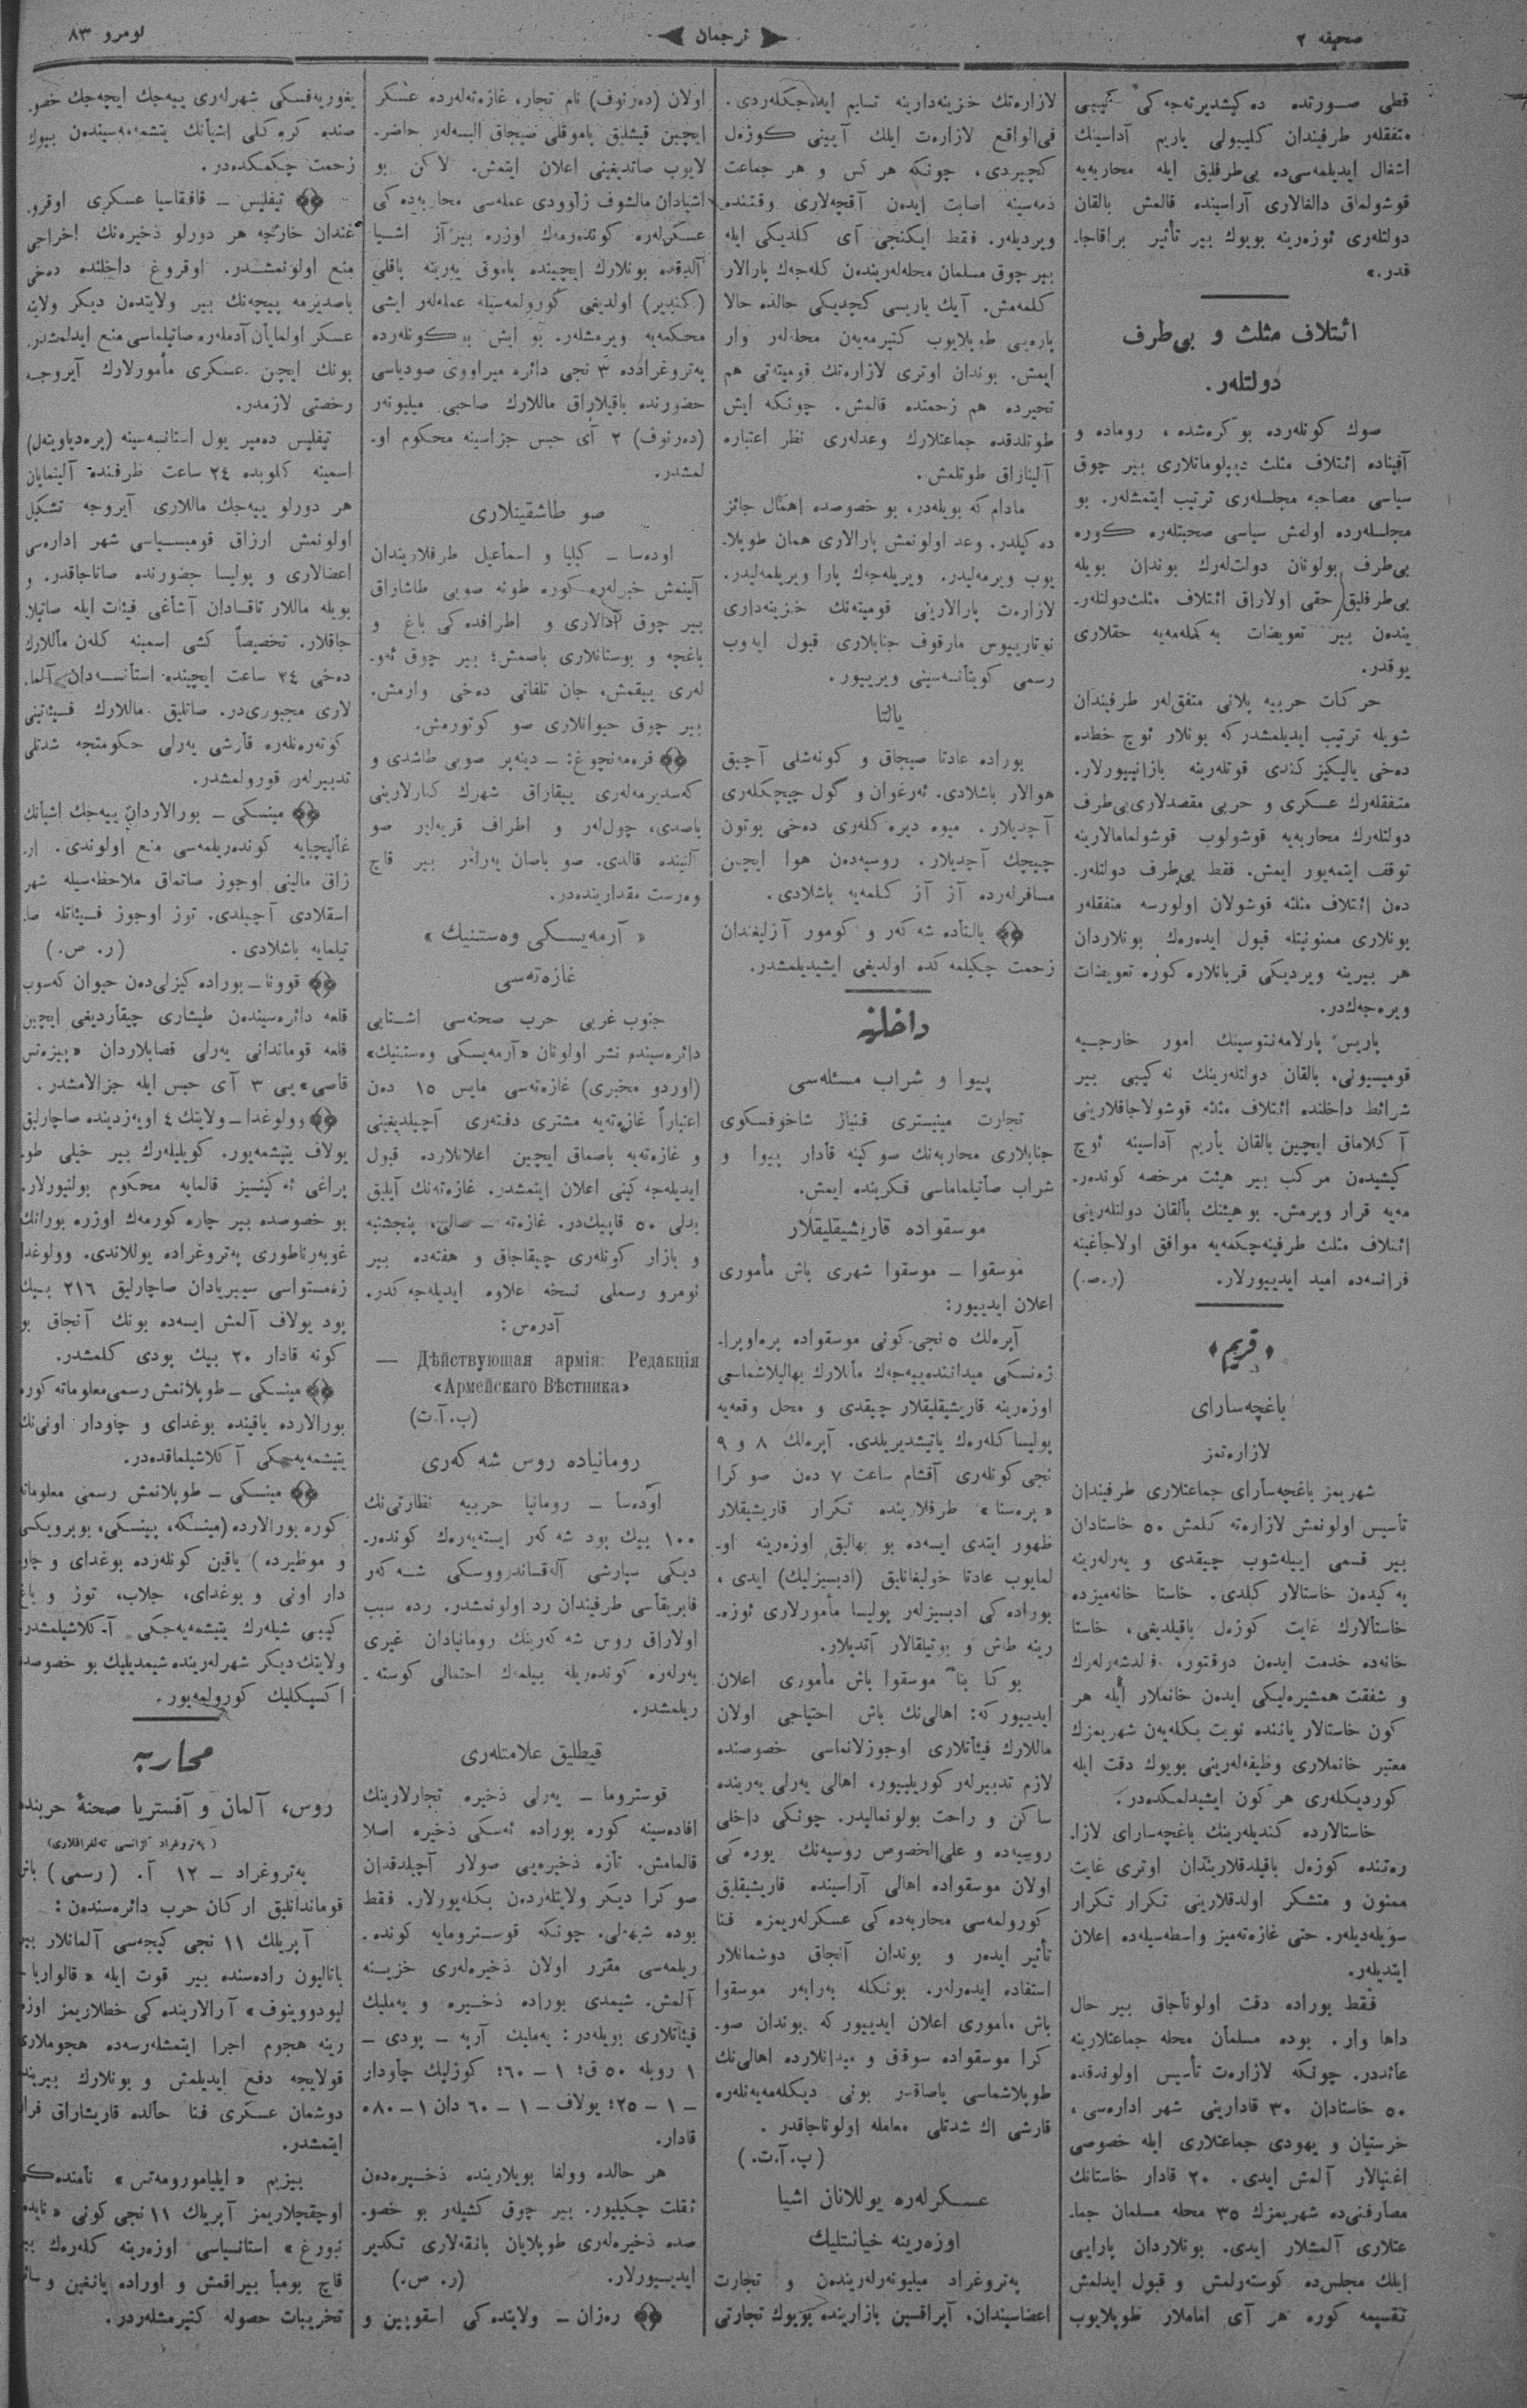 صحیفه ٢
ترجمان
نومرو ٨٣
قطی صورتده ده‌کیشدیرته‌جه‌کی کیبی
متفقلەر طرفیندان کلیبولی یاریم آداسینك
اشغال ایدیلمه‌سی‌ده بی‌طرفلیق ایله محاربه‌یه
قوشولماق دالغالاری آراسینده قالمش بالقان
دولتلەری ئوزەرینه بویوك بیر تأثیر براقاجا۔
قدر.»
ائتلاف مثلث و بی‌طرف
دولتلەر.
صوك کونلەرده بوکرەشده، روماده و
آفیناده ائتلاف مثلث دیپلوماتلاری بیر چوق
سیاسی مصاحبه مجلسلەری ترتیب ایتمشلەر. بو
مجلسلەرده اولمش سیاسی صحبتلەره کوره
بی‌طرف بولونان دولت‌لەرك بوندان بویله
بی‌طرفلیق حقی اولاراق ائتلاف مثلث‌دولتلەر۔
یندەن بیر تعویضات به‌کله‌مه‌یه حقلاری
یوقدر.
حرکات حربیه پلانی متفق‌لەر طرفیندان
شویله ترتیب ایدیلمشدرکه بونلار ئوچ خطده
دەخی یالیکیز کندی قوتلەرینه بازانییورلار.
متفقلەرك عسکری و حربی مقصدلاری‌بی‌طرف
دولتلەرك محاربه‌یه قوشولوب قوشولمامالارینه
توقف ایتمه‌یور ایمش. فقط بی‌طرف دولتلەر۔
دەن ائتلاف مثلثه قوشولان اولورسه متفقلەر
بونلاری ممنونیتله قبول ایدەرەك بونلاردان
هر بیرینه ویردیکی قربانلاره کوره تعویضات
ویرەجەك‌در.
پاریس پارلامەنتوسینك امور خارجیه
قومیسیونی، بالقان دولتلەرینك نه‌کیبی بیر
شرائط داخلنده ائتلاف مثلثه قوشولاجاقلارینی
آکلاماق ایچین بالقان یاریم آداسینه ئوچ
کیشیدەن مرکب بیر هیئت مرخصه کوندەر۔
مه‌یه قرار ویرمش. بوهیئتك بالقان دولتلەرینی
ائتلاف مثلث طرفینه‌چکمه‌یه موافق اولاجاغینه
فرانسه‌ده امید ایدییورلار. (ر.ص.)
﴿قریم﴾
باغچه‌سارای
لازارەتمز
شهریمز باغچه‌سارای جماعتلاری طرفیندان
تأسیس اولونمش لازارەته کلمش ٥٠ خاستادان
بیر قسمی ایییله‌شوب چیقدی و یەرلەرینه
یه‌کیدەن خاستالار کلدی. خاستا خانه‌میزده
خاستالارك غایت کوزەل باقیلدیغی، خاستا
خانه‌ده خدمت ایدەن دوقتور، فلدشەرلەرك
و شفقت همشیرەلیکی ایدەن خانملار ایله هر
کون خاستالار یاننده نوبت بکله‌یەن شهریمزك
معتبر خانملاری وظیفه‌لەرینی بویوك دقت ایله
کوردیکلەری هرکون ایشیدلمکده‌در.
خاستالارده کندیلەرینك باغچه‌سارای لازا۔
رەتنده کوزەل باقیلدقلاریندان اوتری غایت
ممنون و متشکر اولدقلارینی تکرار تکرار
سویله‌دیلەر. حتی غازەته‌میز واسطه‌سیله‌ده اعلان
ایتدیلەر.
فقط بوراده دقت اولوناجاق بیر حال
داها وار. بوده مسلمان محله جماعتلارینه
عائددر. چونکه لازارەت تأسیس اولوندقده
٥٠ خاستادان ٣٠ قادارینی شهر ادارەسی،
خرستیان و یهودی جماعتلاری ایله خصوصی
اغنیالار آلمش ایدی. ٢٠ قادار خاستانك
مصارفنی‌ده شهریمزك ٣٥ محله مسلمان جما۔
عتلاری آلمشلار ایدی. بونلاردان پارایی
ایلك مجلس‌ده کوسته‌رلمش و قبول ایدلمش
تقسیمه کوره هر آی اماملار طوپلایوب
لازارەتك خزینه‌دارینه تسلیم ایدەجکلەردی.
فی‌الواقع لازارەت ایلك آیینی کوزەل
کچیردی، چونکه هر کس و هر جماعت
ذمه‌سینه اصابت ایدەن آقچه‌لاری وقتنده
ویردیلەر. فقط ایکنجی آی کلدیکی ایله
بیر چوق مسلمان محله‌لەریندەن کله‌جەك پارالار
کلمه‌مش. آیك یاریسی کچدیکی حالده حالا
پارەیی طوپلایوب کتیرمه‌یەن محله‌لەر وار
ایمش. بوندان اوتری لازارەتك قومیته‌تی هم
تحیرده هم زحمتده قالمش. چونکه ایش
طوتلدقده جماعتلارك وعدلەری نظر اعتباره
آلیناراق طوتلمش.
مادام که بویله‌در، بو خصوصده اهمال جائز
ده‌کیلدر. وعد اولونمش پارالاری همان طوپلا۔
یوب ویرمه‌لیدر. ویریله‌جەك پارا ویریلمه‌لیدر.
لازارەت پارالارینی قومیته‌تك خزینه‌داری
نوتاریپوس مارقوف جنابلاری قبول ایدەوب
رسمی کویتانسه‌سینی ویرییور.
یالتا
بوراده عادتا صیجاق و کونەشلی آچیق
هوالار باشلادی. ئەرغوان و گول چیچکلەری
آچدیلار. میوه دیرەکلەری دەخی بوتون
چیچك آچدیلار. روسیه‌دەن هوا ایچین
مسافرلەرده آز آز کلمه‌یه باشلادی.
﴿﴾ یالتاده شەکەر و کومور آزلیغندان
زحمت چکیلمه‌کده اولدیغی ایشیدیلمشدر.
داخلیه
پیوا و شراب مسئله‌سی
تجارت مینیستری قنیاز شاخوفسکوی
جنابلاری محاربه‌نك صوکینه قادار پیوا و
شراب صاتیلماماسی فکرینده ایمش.
موسقواده قاریشیقلیقلار
موسقوا ـ موسقوا شهری باش مأموری
اعلان ایدییور:
آپرەلك ٥ نجی کونی موسقواده پرەاوبرا۔
ژەنسکی میداننده‌ییه‌جەك ماللارك بهالیلاشماسی
اوزەرینه قاریشیقلیقلار چیقدی و محل وقعه‌یه
پولیسا کلەرەك یاتیشدیریلدی. آپرەلك ٨ و ٩
نجی کونلەری آقشام ساعت ٧ دەن صوکرا
«پرەسنا» طرفلارینده تکرار قاریشیقلار
ظهور ایتدی ایسه‌ده بو بهالیق اوزەرینه او۔
لمایوب عادتا خولیغانلیق (ادبسیزلیك) ایدی،
بوراده‌کی ادبسیزلەر پولیسا مأمورلاری ئوزە۔
رینه طاش و بوتیلقالار آتدیلار.
بوکا بناً موسقوا باش مأموری اعلان
ایدییورکه: اهالی‌نك باش احتیاجی اولان
ماللارك فیئاتلاری اوجوزلانماسی خصوصنده
لازم تدبیرلەر کوریلییور، اهالی یەرلی یەرینده
ساکن و راحت بولونمالیدر. چونکی داخلی
روسیه‌ده و علی‌الخصوص روسیه‌نك یورەکی
اولان موسقواده اهالی آراسینده قاریشیقلیق
کورولمه‌سی محاربه‌ده‌کی عسکرلەریمزه فنا
تأثیر ایدەر و بوندان آنجاق دوشمانلار
استفاده ایدەرلەر. بونکله بەرابەر موسقوا
باش ماموری اعلان ایدییورکه بوندان صو۔
کرا موسقواده سوقاق و میدانلارده اهالی‌نك
طوپلاشماسی یاصاقدر بونی دیکله‌مه‌یەنلەره
قارشی اك شدتلی معامله اولوناجاقدر.
(پ.آ.ت.)
عسکرلەره یوللانان اشیا
اوزەرینه خیانتلیك
پەتروغراد میلیونەرلەریندەن و تجارت
اعضاسیندان، آپراقسین بازارینده بویوك تجارتی
اولان (دەرنوف) نام تجار، غازەته‌لەرده عسکر
ایچین قیشلیق پاموقلی صیجاق البسه‌لەر حاضر۔
لایوب صاتدیغینی اعلان ایتمش. لاکن بو
اشیادان مالشوف زاوودی عمله‌سی محاربه‌ده‌کی
عسکرلەره کوندەرمەك اوزره بیر آز اشیا
آلدقده بونلارك ایچینده پاموق یەرینه پاقلی
(کندیر) اولدیغی کورولمه‌سیله عمله‌لەر ایشی
محکمه‌یه ویرمشلەر. بو ایش بوکونلەرده
پەتروغرادده ٣ نجی دائره میراووی صودیاسی
حضورنده باقیلاراق ماللارك صاحبی میلیونەر
(دەرنوف) ٢ آی حبس جزاسینه محکوم او۔
لمشدر.
صو طاشقینلاری
اودەسا ـ کیلیا و اسمأعیل طرفلاریندان
آلینمش خبرلەره کوره طونه صویی طاشاراق
بیر چوق آدالاری و اطرافده‌کی باغ و
باغچه و بوستانلاری باصمش؛ بیر چوق ئەو۔
لەری ییقمش، جان تلفاتی دەخی وارمش.
بیر چوق حیوانلاری صو کوتورمش.
﴿﴾ قرەمەنچوغ: ـ دنیەپر صویی طاشدی و
کەسدیرمه‌لەری ییقاراق شهرك کنارلارینی
باصدی، چول‌لەر و اطراف قریه‌لر صو
آلتینده قالدی. صو باصان یەرلەر بیر قاچ
وەرست مقدارینده‌در.
« آرمەیسکی وەستنیك »
غازەته‌سی
جنوب غربی حرب صحنه‌سی اشتابی
دائره‌سینده نشر اولونان «آرمەیسکی وەستنیك»
(اوردو مخبری) غازەته‌سی مایس ١٥ دەن
اعتباراً غازەته‌یه مشتری دفتەری آچیلدیغینی
و غازەته‌یه باصماق ایچین اعلانلارده قبول
ایدیله‌جه‌کینی اعلان ایتمشدر. غازەته‌نك آیلیق
بدلی ٥٠ قاپیك‌در. غازەته ـ صالی، پنجشنبه
و بازار کونلەری چیقاجاق و هفته‌ده بیر
نومرو رسملی نسخه علاوه ایدیله‌جەکدر.
آدرەس:
— Дѣйствующая армія: Редакція
«Армейскаго Вѣстника»
(پ.آ.ت)
رومانیاده روس شەکەری
اودەسا ـ رومانیا حربیه نظارتی‌نك
١٠٠ بیك پود شەکەر ایسته‌یەرەك کوندەر۔
دیکی سپارشی آلەقساندرووسکی شەکەر
فابریقأسی طرفیندان رد اولونمشدر. رده سبب
اولاراق روس شەکەرینك رومانیادان غیری
یەرلەره کوندەریله بیلمەك احتمالی کوسته۔
ریلمشدر.
قیطلیق علامتلەری
قوستروما ـ یەرلی ذخیره تجارلارینك
افاده‌سینه کوره بوراده ئەسکی ذخیره اصلا
قالمامش. تازه ذخیره‌یی صولار آچیلدقدان
صوکرا دیکر ولایتلەردەن بکله‌یورلار. فقط
بوده شبهه‌لی. چونکه قوسترومایه کوندە۔
ریلمه‌سی مقرر اولان ذخیره‌لەری خزینه
آلمش. شیمدی بوراده ذخیره و یەملیك
فیئاتلاری بویله‌در: یەملیك آرپه ـ پودی ـ
١ روبله ٥٠ ق؛ ١ ـ ٦٠؛ کوزلیك چاودار
ـ ١ ـ ٢٥؛ یولاف ـ ١ ـ ٦٠ دان ١ ـ ٨٠ ه
قادار.
هر حالده وولغا بویلارینده ذخیره‌دەن
ثقلت چکیلیور. بیر چوق کشیلەر بو خصو۔
صده ذخیره‌لەری طوپلایان بانقه‌لاری تکدیر
ایدییورلار. (ر. ص.)
﴿﴾ رەزان ـ ولایتده‌کی اسقوپین و
یغوریەفسکی شهرلەری ییه‌جك ایچه‌جك خصو۔
صنده کره‌کلی اشیأنك یتشمه‌مه‌سیندەن بیوك
زحمت چکمکده‌در.
﴿﴾ تیفلیس ـ قافقاسیا عسکری اوقرو۔
غندان خارجه هر دورلو ذخیره‌نك اخراجی
منع اولونمشدر. اوقروغ داخلنده دەخی
باصدیرمه پیچه‌نك بیر ولایتدەن دیکر ولایته
عسکر اولمایان آدملەره صاتیلماسی منع ایدلمشدر.
بونك ایچین عسکری مأمورلارك آیروجه
رخصتی لازمدر.
تیفلیس دەمیر یول استانسه‌سینه (پرەدیاویتەل)
اسمینه کلوبده ٢٤ ساعت ظرفنده آلینمایان
هر دورلو ییه‌جك ماللاری آیروجه تشکیل
اولونمش ارزاق قومیسیاسی شهر اداره‌سی
اعضالاری و پولیسا حضورنده صاتاجاقدر. و
بویله ماللار تاقسادان آشأغی فیئات ایله صاتیلا
جاقلار. تخصیصاً کشی اسمینه کلەن ماللارك
دەخی ٢٤ ساعت ایچینده استأنسه‌دان آلما۔
لاری مجبوری‌در. صاتلیق ماللارك فیئاتینی
کوتەرەنلەره قارشی یەرلی حکومتجه شدتلی
تدبیرلەر قورولمشدر.
﴿﴾ مینسکی ـ بورالاردان ییه‌جك اشیأنك
غالیچیایه کوندەریلمه‌سی منع اولوندی. ار۔
زاق مالینی اوجوز صاتماق ملاحظه‌سیله شهر
اسقلادی آچیلدی. توز اوجوز فیئاتله صا۔
تیلمایه باشلادی. (ر. ص.)
﴿﴾ قوونا ـ بوراده کیزلی‌دەن حیوان کەسوب
قلعه دائره‌سیندەن طیشاری چیقأردیغی ایچین
قلعه قوماندانی یەرلی قصابلاردان «بیزەتس
قاصی» یی ٣ آی حبس ایله جزالامشدر.
﴿﴾ وولوغدا ـ ولایتك ٤ اویەزدینده صاچارلیق
یولاف یتیشمه‌یور. کویلیلەرك بیر خیلی طو۔
پراغی ئەکینسیز قالمایه محکوم بولنیورلار.
بو خصوصده بیر چاره کورمەك اوزره بورانك
غوبەرناطوری پەتروغراده یوللاندی. وولوغدا
زەمستواسی سیبریادان صاچارلیق ٢١٦ بیك
پود یولاف آلمش ایسه‌ده بونك آنجاق بو
کونه قادار ٢٠ بیك پودی کلمشدر.
﴿﴾ مینسکی ـ طوپلانمش رسمی معلوماته کوره
بورالارده یاقینده بوغدای و چاودار اونی‌نك
یتیشمه‌یه‌جکی آکلاشیلماقده‌در.
﴿﴾ مینسکی ـ طوپلانمش رسمی معلوماته
کوره بورالارده (مینسکه، پینسکی، بوبرویکسی
و موظیرده) یاقین کونلەرده بوغدای و چاو
دار اونی و بوغدای، جلاب، توز و یاغ
کیبی شیلەرك یتیشمه‌یه‌جکی آکلاشیلمشدر
ولایتك دیکر شهرلەرینده شیمدیلیك بو خصوصده
اکسیکلیك کورولمه‌یور.
محاربه
روس، آلمان و آفستریا صحنهٔ حربنده
(پەتروغراد آژانسی تەلغرافلاری)
پەتروغراد ـ ١٢ آ. (رسمی) باش
قوماندانلیق ارکان حرب دائره‌سندەن:
آپریلك ١١ نجی کیجه‌سی آلمانلار بیر
باتالیون راده‌سنده بیر قوت ایله «قالواریا ـ
لیودووینوف» آرالارینده‌کی خطلاریمز اوزه
رینه هجوم اجرا ایتمشلەرسه‌ده هجوملاری
قولایجه دفع ایدیلمش و بونلارك بیرینده
دوشمان عسکری فنا حالده قاریشاراق فرار
ایتمشدر.
بیزیم «ایلیامورومەتس» نامنده‌کی
اوچقچلاریمز آپریلك ١١ نجی کونی «نایده
نبورغ» استانسیاسی اوزەرینه کلەرەك بیر
قاچ بومبا بیراقمش و اوراده یانغین و سائر
تخریبات حصوله کتیرمشلەردر.